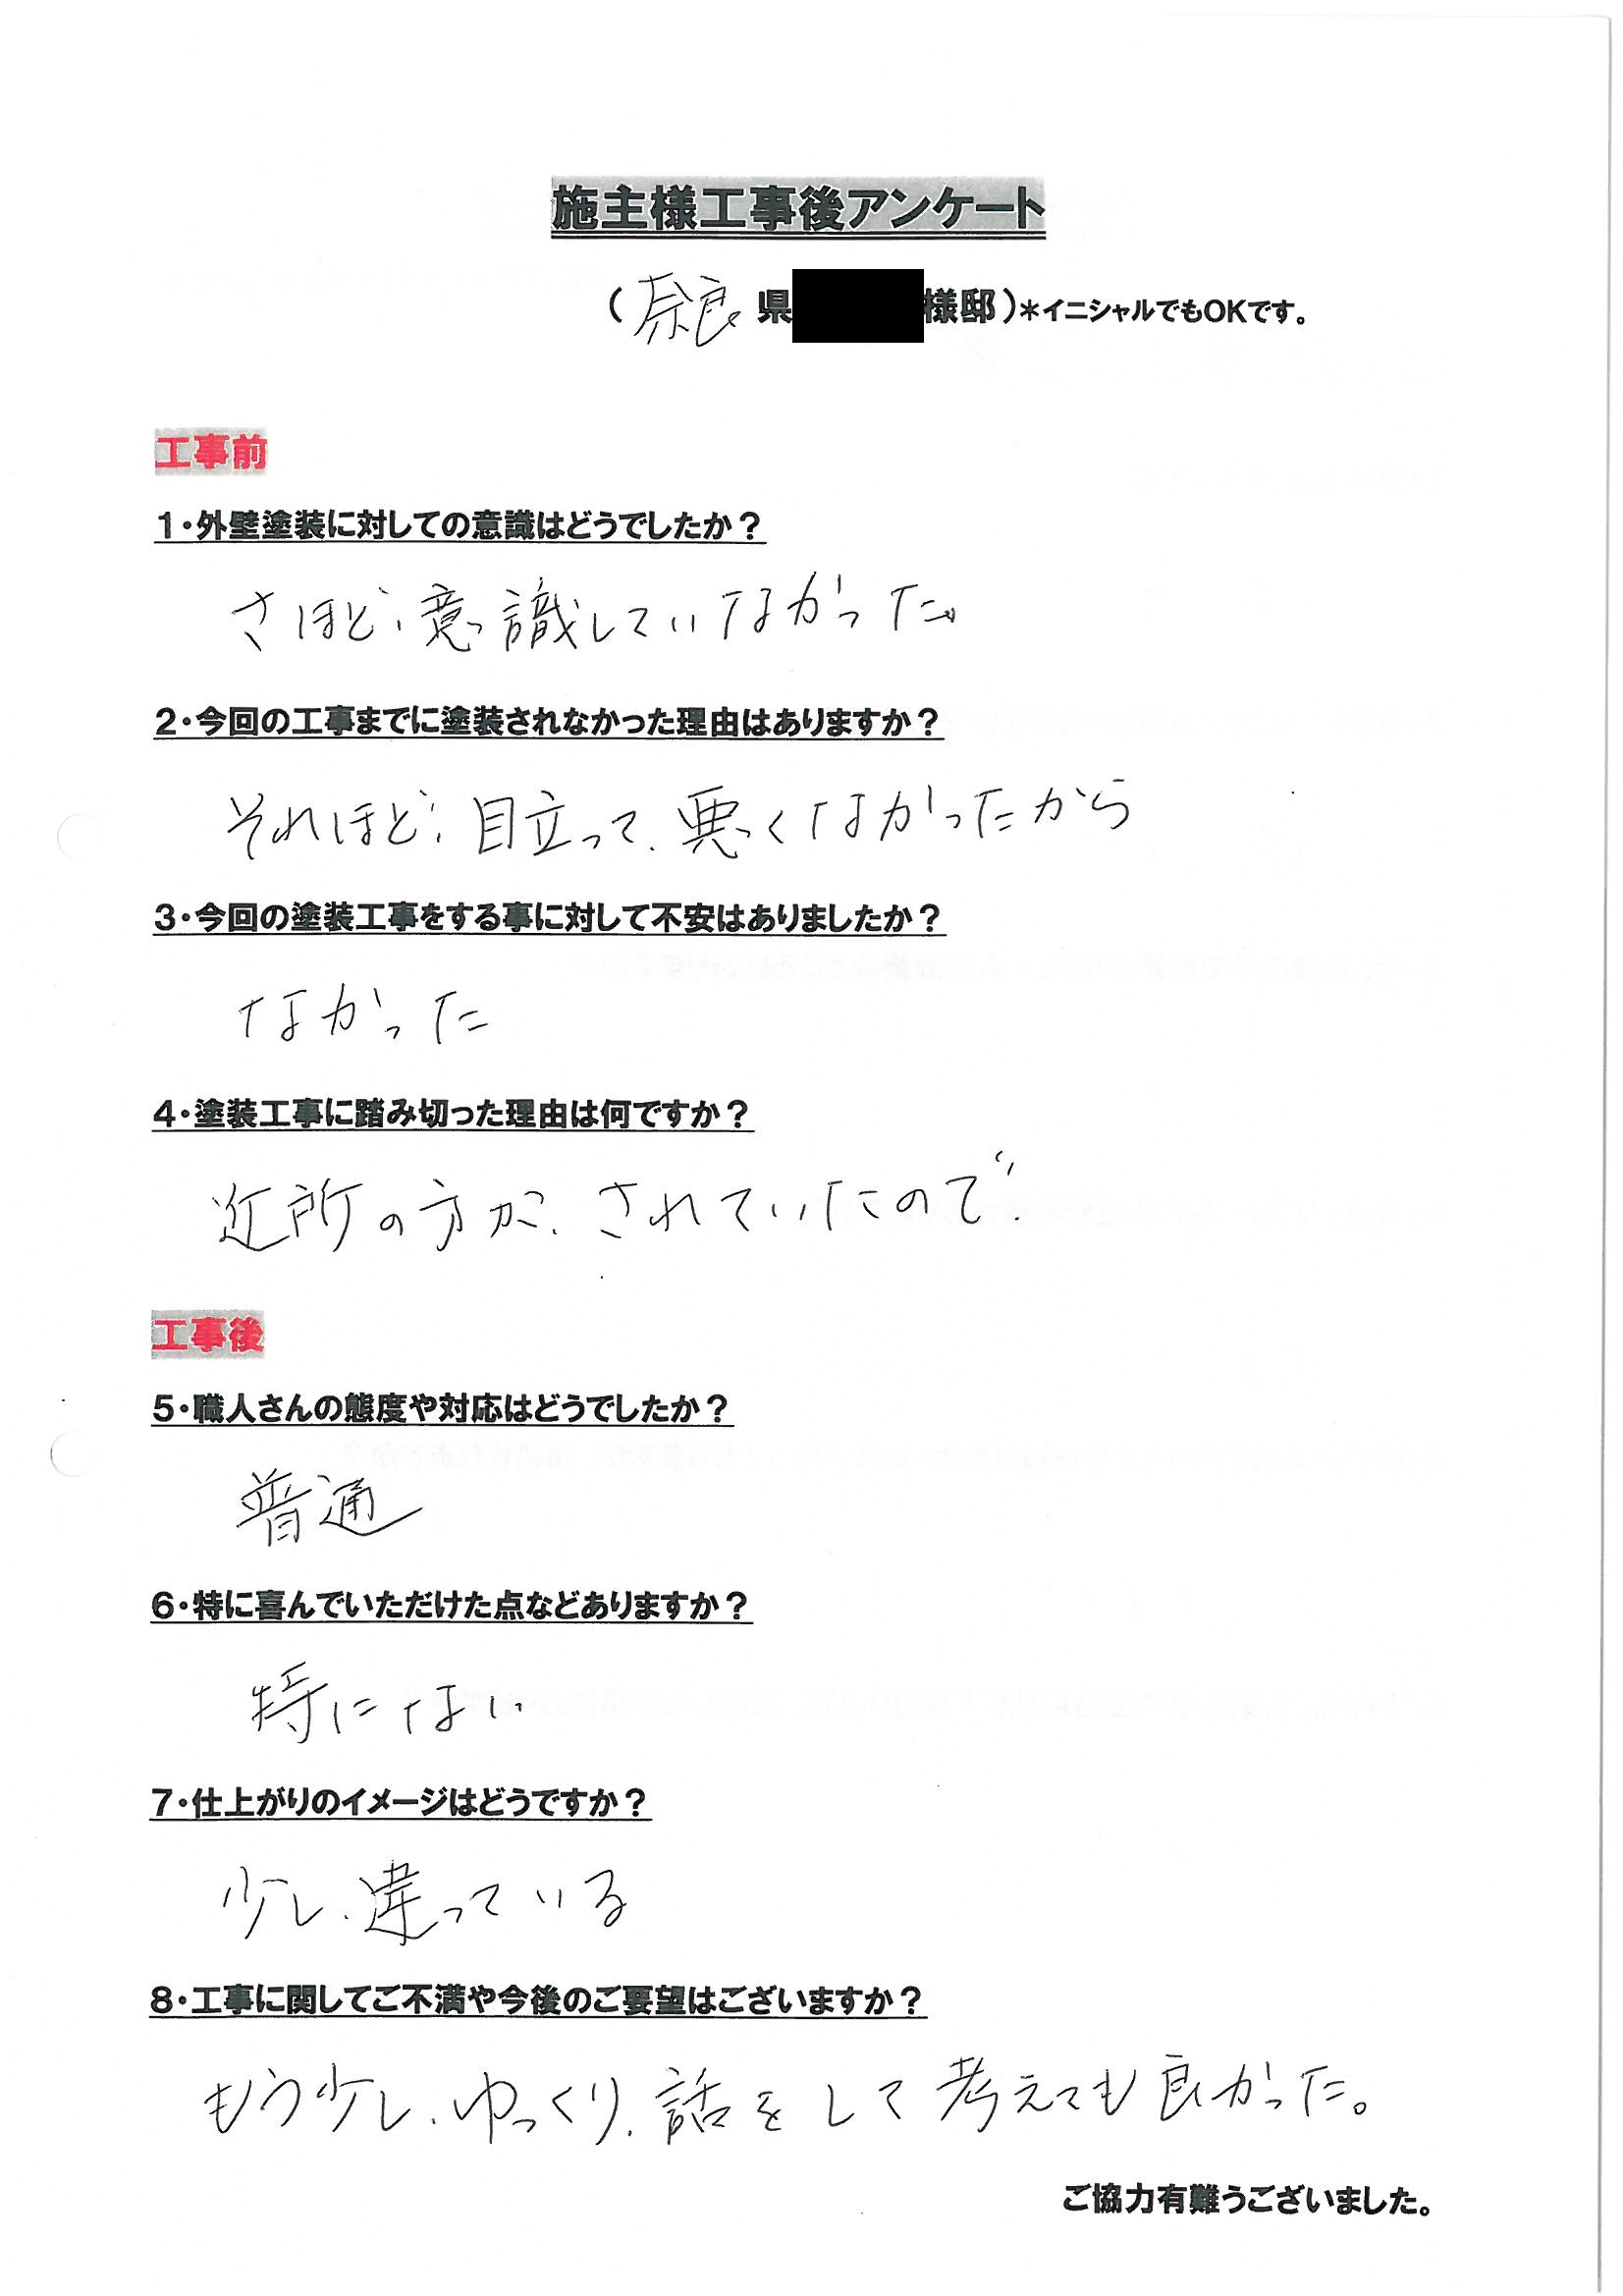 施主様工事後アンケート
（奈良県 様邸）＊イニシャルでもOKです。
工事前
1・外壁塗装に対しての意識はどうでしたか？
さほど、意識していなかった。
2・今回の工事までに塗装されなかった理由はありますか？
それほど、目立って、悪くなかったから
3・今回の塗装工事をする事に対して不安はありましたか？
なかった
4・塗装工事に踏み切った理由は何ですか？
近所の方が、されていたので
工事後
5・職人さんの態度や対応はどうでしたか？
普通
6・特に喜んでいただけた点などありますか？
特にない
7・仕上がりのイメージはどうですか？
少し、違っている
8・工事に関してご不満や今後のご要望はございますか？
もう少し、ゆっくり、話をして考えても良かった。
ご協力有難うございました。